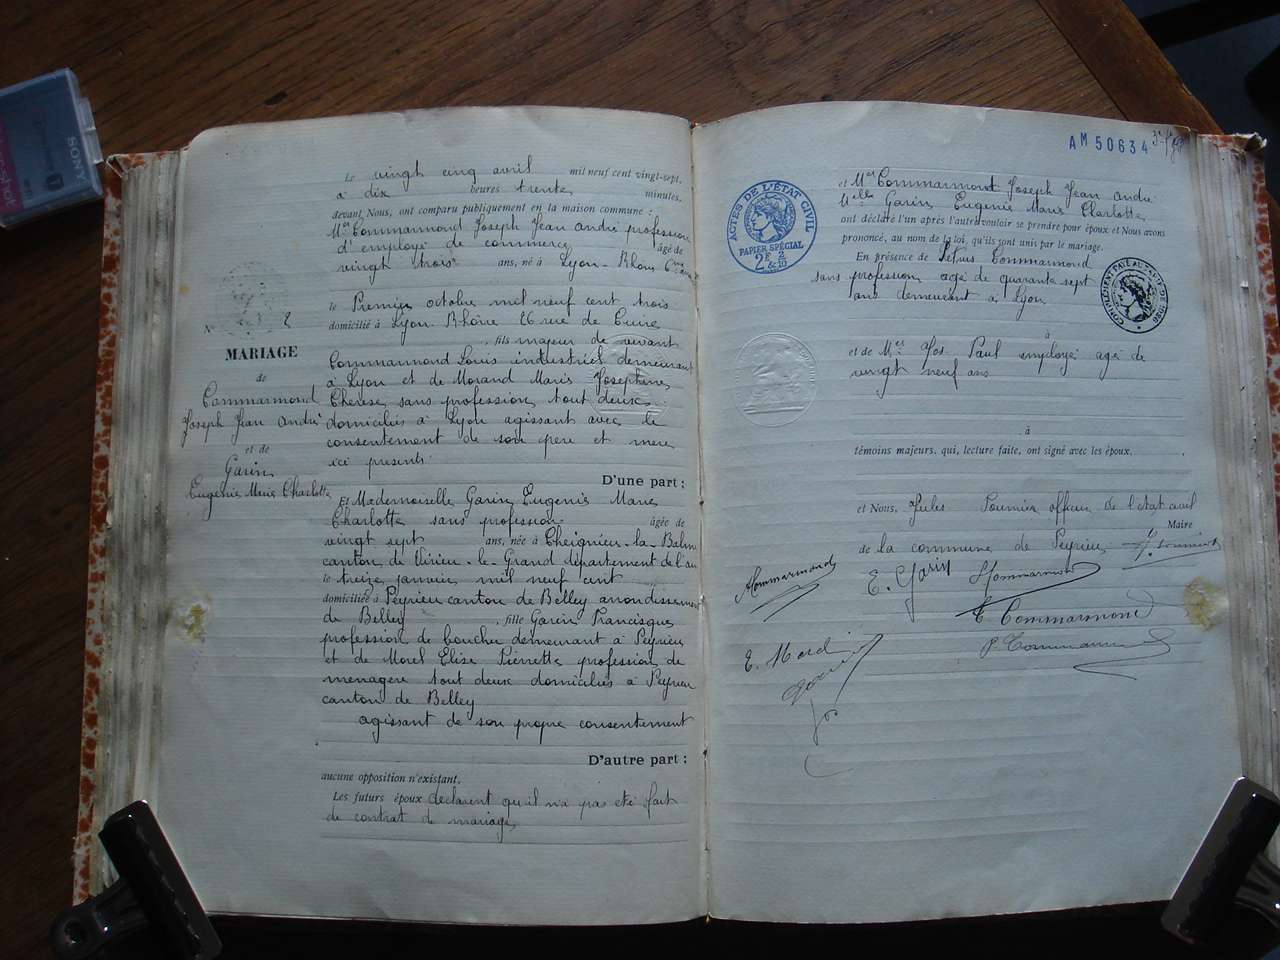 SONY
N° 2
MARIAGE
de
Commarmond
Joseph Jean André
et de
Garin
Eugenie Marie Charlotte
Le vingt cinq avril mil neuf cent vingt-sept,
à dix heures trente minutes,
devant Nous, ont comparu publiquement en la maison commune :
Mr Commarmond Joseph Jean André profession
d'employé de commerce âgé de
vingt trois ans, né à Lyon - Rhône
le Premier octobre mil neuf cent trois
domicilié à Lyon Rhône 26 rue de Cuire
, fils majeur de vivant
Commarmond Louis industriel demeurant
à Lyon et de Morand Marie Josephine
Thérèse sans profession tout deux
domiciliés à Lyon agissant avec le
consentement de son père et mère
ici presents.
D'une part :
Et Mademoiselle Garin Eugenie Marie
Charlotte sans profession âgée de
vingt sept ans, née à Cheignieu-la-Balme
canton de Virieu-le-Grand département de l'ain
le treize janvier mil neuf cent
domiciliée à Peyrieu canton de Belley arrondissement
de Belley , fille Garin Francisque
profession de boucher demeurant à Peyrieu
et de Morel Elise Pierrette profession de
menagère tout deux domiciliés à Peyrieu
canton de Belley
agissant de son propre consentement
D'autre part :
aucune opposition n'existant.
Les futurs époux declarent qu'il n'a pas été fait
de contrat de mariage
AM 50634
ACTES DE L'ÉTAT CIVIL
PAPIER SPÉCIAL
2F 2
& 10
et Mr Commarmond Joseph Jean André
Melle Garin Eugenie Marie Charlotte
ont déclaré l'un après l'autre vouloir se prendre pour époux et Nous avons
prononcé, au nom de la loi, qu'ils sont unis par le mariage.
En présence de Commarmond
sans profession agé de quarante sept
ans demeurant à Lyon
à
et de Mr Jos Paul employé agé de
vingt neuf ans
à
témoins majeurs, qui, lecture faite, ont signé avec les époux.
et Nous, Jules Fournier officier de l'état civil
Maire
de la commune de Peyrieu J. Fournier
Commarmond E. Garin Commarmond
Commarmond
E. Morel P. Commarmond
Garin